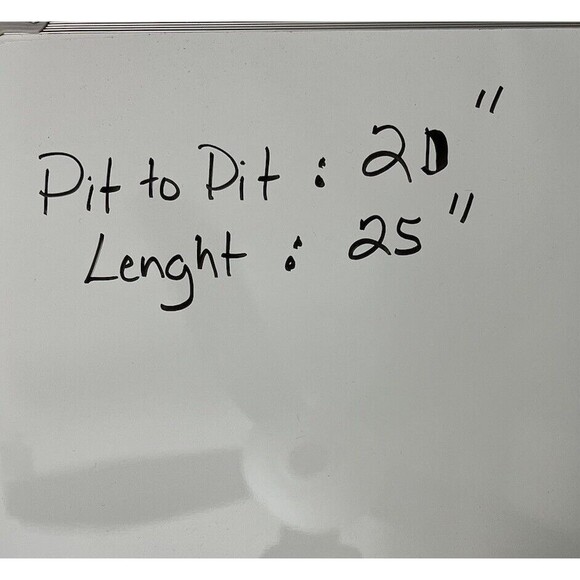 Pit to Pit : 20"
Lenght : 25"